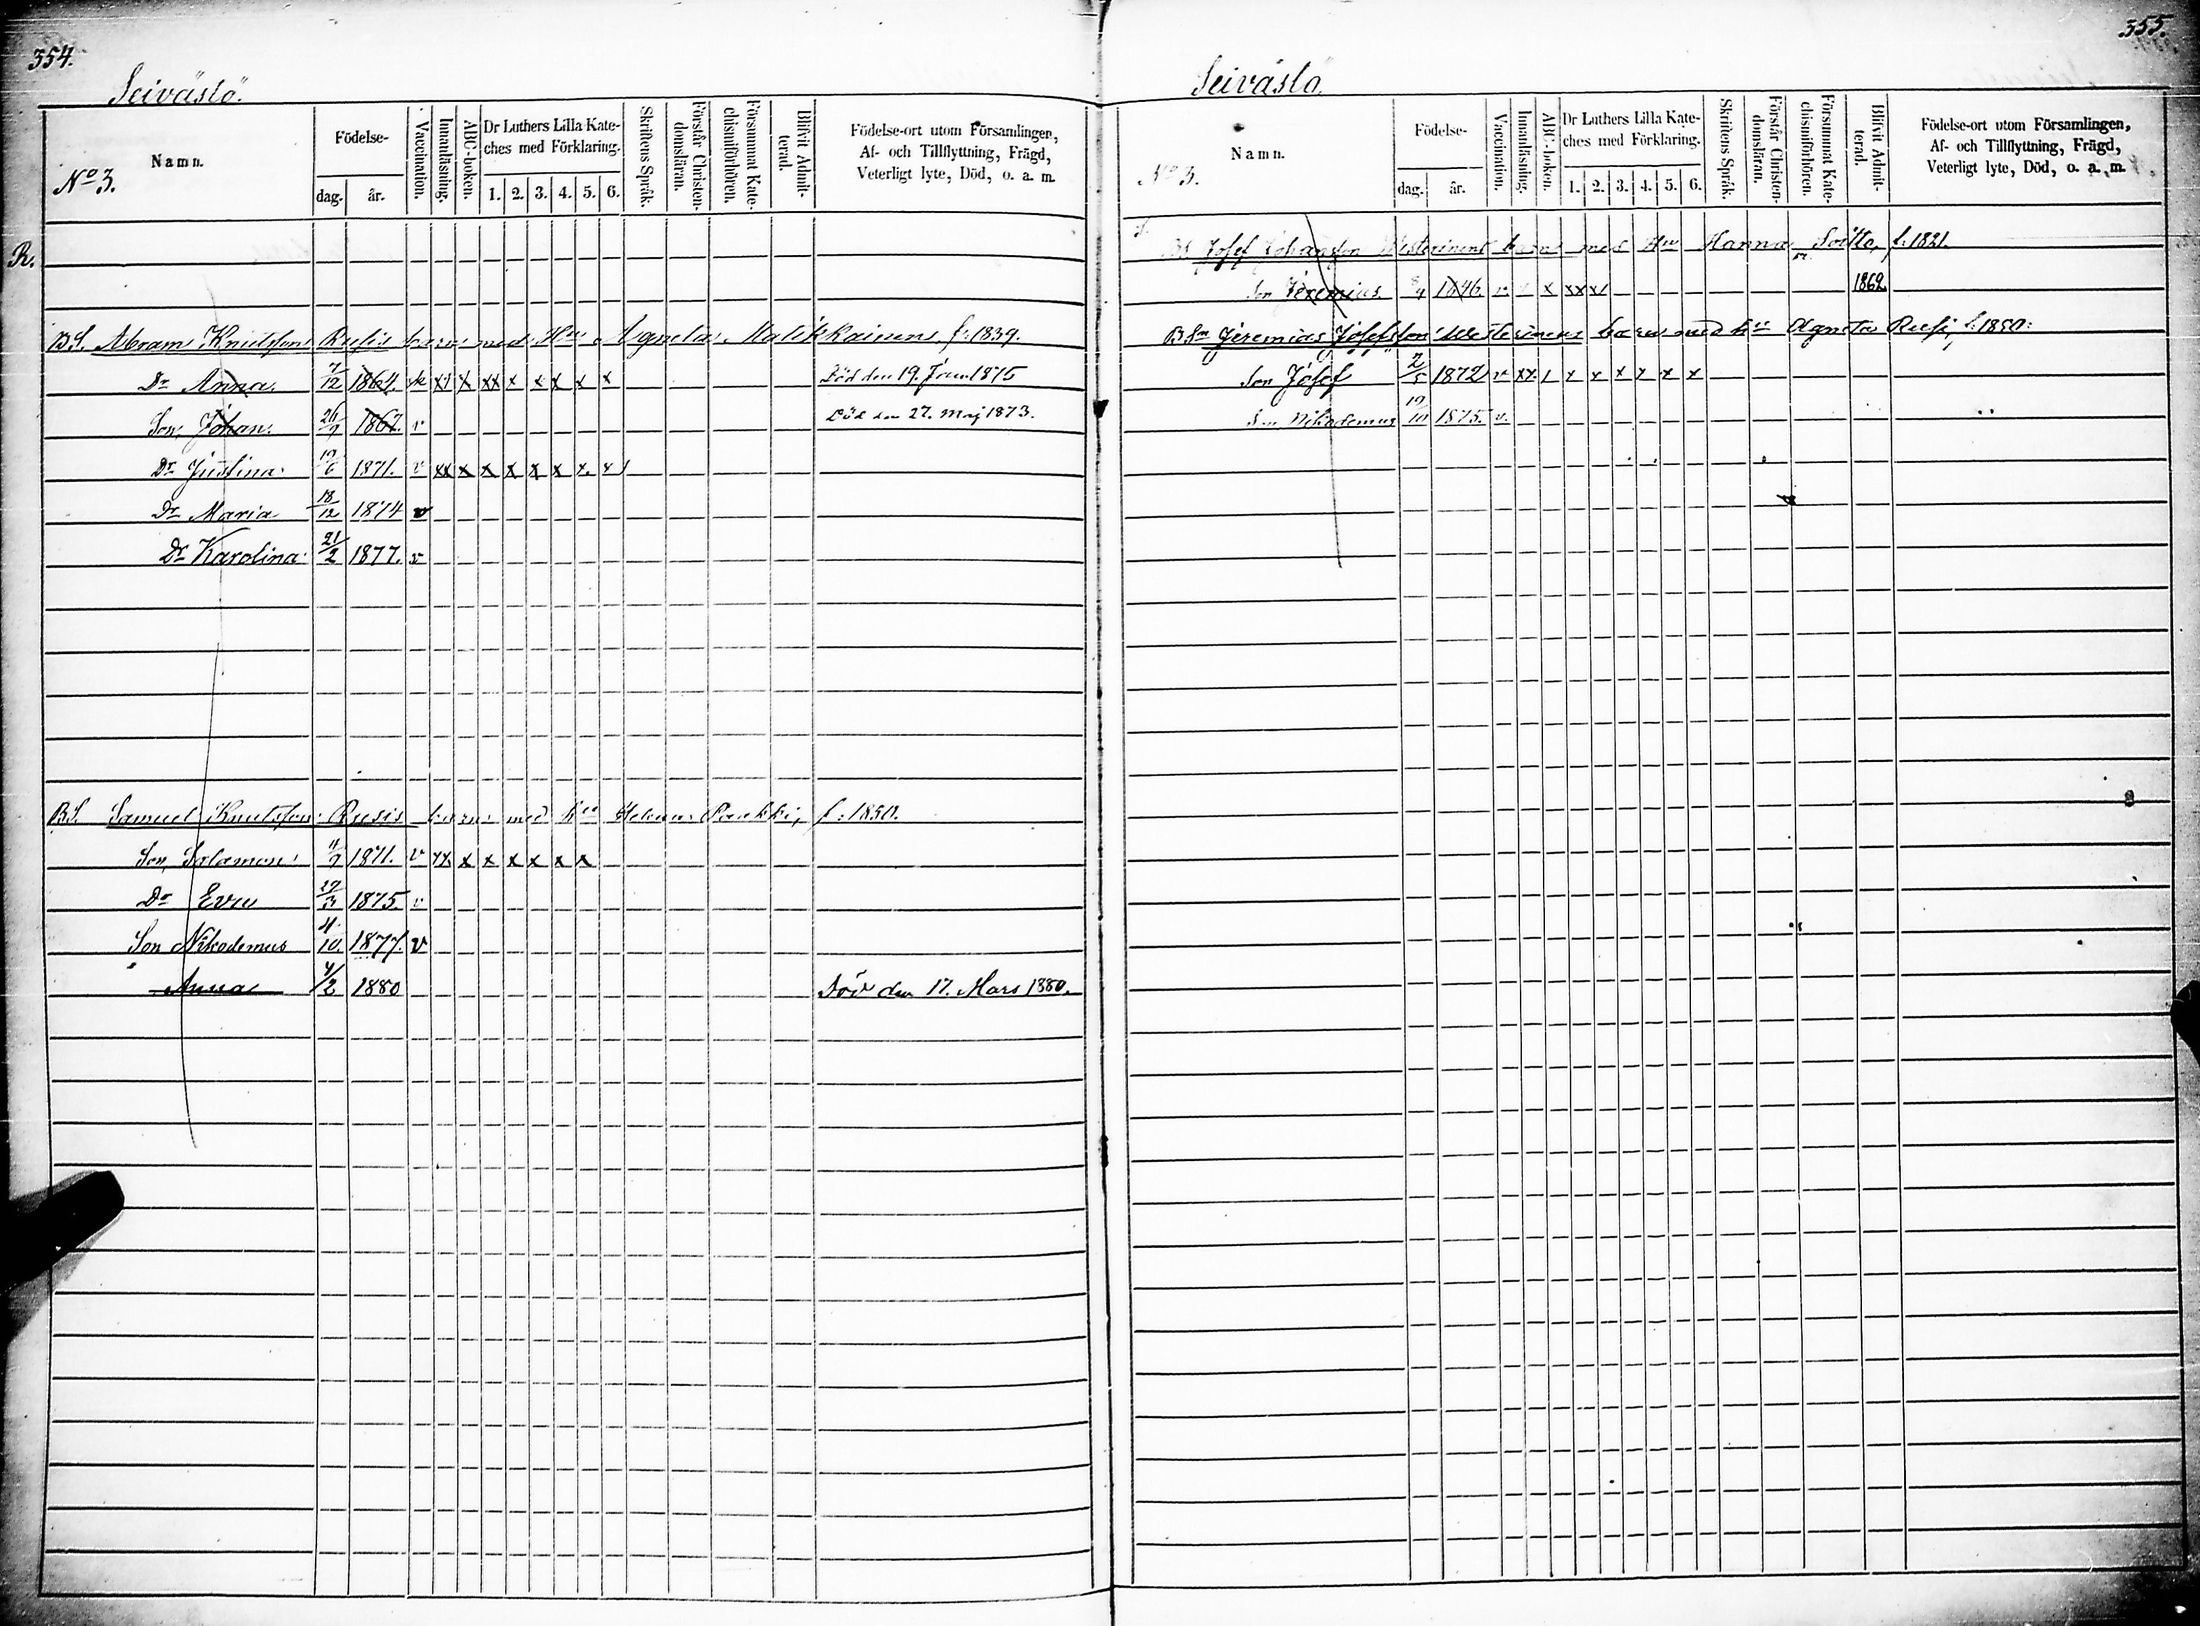 354.
Seivästö.
No 3.
Namn.
Födelse-
dag.
år.
Vaccination.
Innanläsning.
ABC-boken.
Dr Luthers Lilla Kate-
ches med Förklaring.
1. 2. 3. 4. 5. 6.
Skriftens Språk.
Förstår Christen-
domsläran.
Försummat Kate-
chismiförhören.
Blifvit Admit-
terad.
Födelse-ort utom Församlingen,
Af- och Tillflyttning, Frägd,
Veterligt lyte, Död, o. a. m.
R.
BS. Abram Knutsson Rusis barn med Hu Agneta Matikkainen f: 1839.
Dr Anna. 7/12 1864. x xx x x x x x x Död den 19. Janu 1875
Son, Johan. 26/9 1867. v Död den 27. Maj 1873.
Dr Justina. 19/6 1871. v xx x x x x x x x
Dr Maria 18/12 1874 v
Dr Karolina 21/2 1877. v
BS. Samuel Knutsson Rusis barn med hu Helena f: 1850.
Son, Salamon 11/9 1871. v xx x x x x x x
Dr Eva 27/3 1875. v
Son Nikodemus 4/10 1877. v
" Anna 4/2 1880 Död den 17. Mars 1880.
355.
Seivästö.
No 3.
Namn.
Födelse-
dag.
år.
Vaccination.
Innanläsning.
ABC-boken.
Dr Luthers Lilla Kate-
ches med Förklaring.
1. 2. 3. 4. 5. 6.
Skriftens Språk.
Förstår Christen-
domsläran.
Försummat Kate-
chismiförhören.
Blifvit Admit-
terad.
Födelse-ort utom Församlingen,
Af- och Tillflyttning, Frägd,
Veterligt lyte, Död, o. a. m.
BS Josef Johansson Westerinens barn med Hu Hanna Soitto, f: 1821.
Son Jeremias. 1846. v x xx x 1862
BSn Jeremias Josefsson Westerinens barn med hu Agneta Rusi, f: 1850:
Son Josef 2/5 1872 v xx x x x x x x
Son Nikodemus 19/10 1875. v.